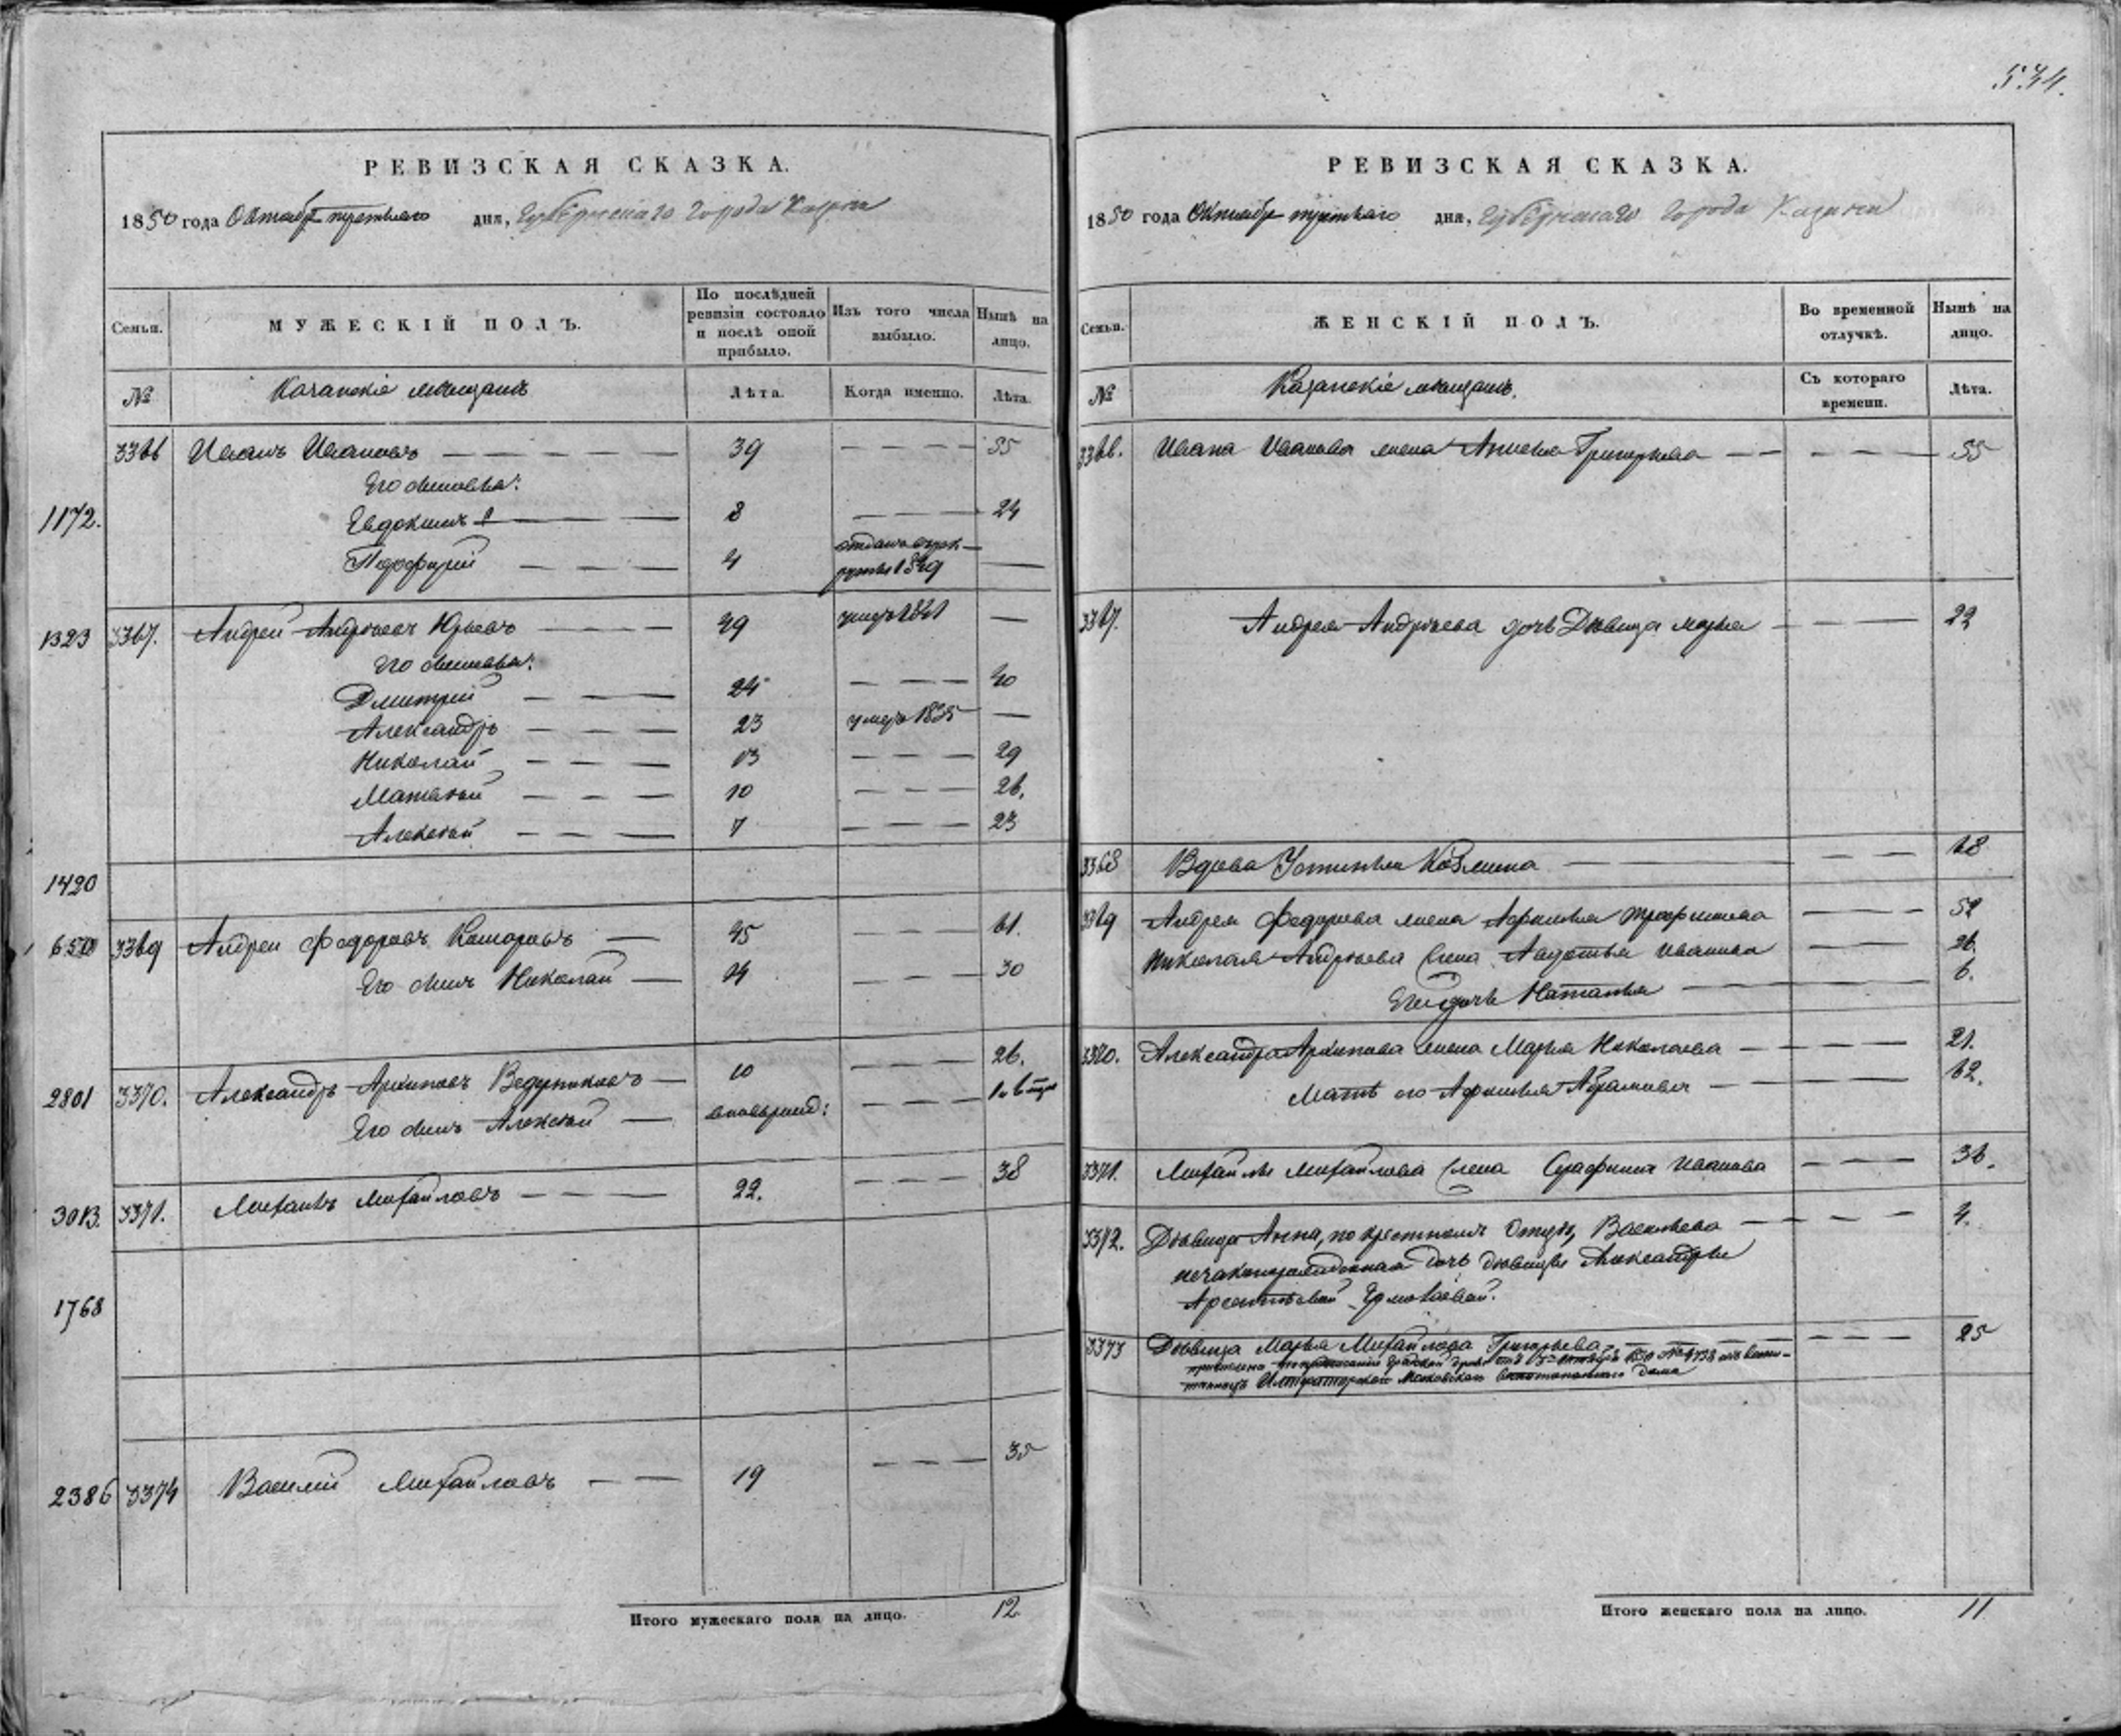 534.
РЕВИЗСКАЯ СКАЗКА.
1850 года Октября третьяго дня, Губернскаго города Казани
Семьи.
МУЖЕСКІЙ ПОЛЪ.
По послѣдней ревизіи состояло и послѣ оной прибыло.
Изъ того числа выбыло.
Нынѣ на лицо.
№
Казанскіе мѣщане
Лѣта.
Когда именно.
Лѣта.
3366 Иванъ Ивановъ — — — — 39 — — — — 55
Его сыновья:
1172. Евдокимъ 8 — — — 24
Порфирій — — — 4 отданъ въ рек-
руты 1849 —
1323 3367. Андрей Андреевъ Юрьевъ — — — 49 умеръ 1841 —
Его сыновья:
Дмитрій — — — 24 — — — 40
Александръ — — — 23 умеръ 1835 —
Николай — — — 13 — — — 29
Матвѣй — — — 10 — — — 26.
Алексѣй — — — 7 — — — 23
1420
650 3369 Андрей Федоровъ — 45 — — — 61.
Его сынъ Николай — 14 — — 30
2801 3370. Александръ Архиповъ — 10 — — — 26.
Его сынъ Алексѣй — — — —
3013. 3371. Михаилъ Михайловъ — — — 22. — — — 38
1768
2386 3374 Василій Михайловъ — — 19 — — — — 35
Итого мужескаго пола на лицо. 12.
РЕВИЗСКАЯ СКАЗКА.
1850 года Октября третьяго дня, Губернскаго города Казани
Семьи.
ЖЕНСКІЙ ПОЛЪ.
Во временной отлучкѣ.
Нынѣ на лицо.
№
Казанскіе мѣщане.
Съ котораго времени.
Лѣта.
3366. Ивана Иванова жена Григорьева — — — — — 55
3367. Андрея Андреева дочь Дѣвица Марья — — — 22
3368 Вдова Устинья Козмина — — — 68
3369 Андрея Федорова жена Афимья Трофимова — — 52
Николая Андреева жена Авдотья Иванова — — 26.
Его дочь Наталья — — — 6.
3370. Александра Архипова жена Марья Николаева — — — — 21.
Мать его Афимья Абрамова — — — 62.
3371. Михайлы Михайлова жена Серафима Иванова — — — 36.
3372. Дѣвица Анна, по крестномъ Отцѣ, Васильева — — — — 4.
незаконнорожденная дочь дѣвицы Александры
Арсентьевой Ермолаевой.
3373 Дѣвица Марья Михайлова Григорьева — — — — — 25
Императорскаго Московскаго Воспитательнаго дома
Итого женскаго пола на лицо. 11